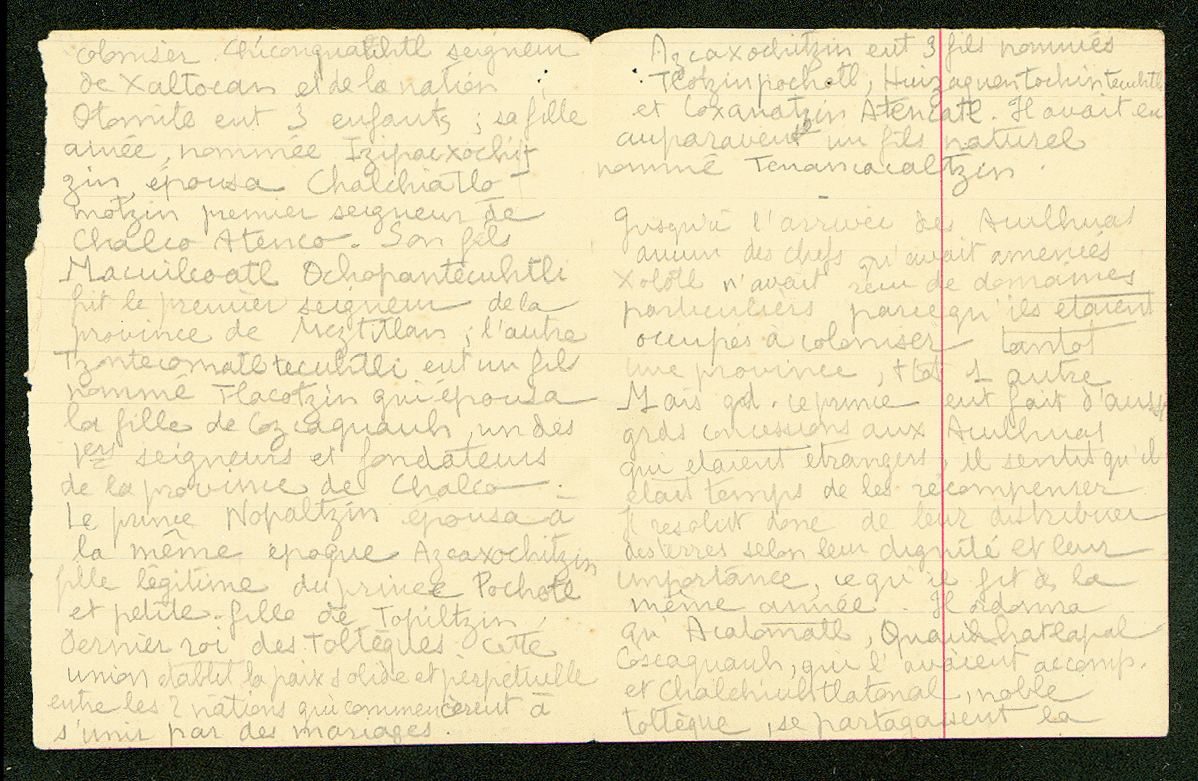 coloniser. Chiconquauhtli seigneur
de Xaltocan et de la nation
Otomite eut 3 enfants ; sa fille
ainée, nommée Izipacxochit
zin, épousa Chalchiatlo-
motzin premier seigneur de
Chalco Atenco. Son fils
Macuilcoatl Ochopantecuhtli
fut le premier seigneur de la
province de Meztitlan ; l'autre
Tzontecomatl tecuhtli eut un fils
nommé Tlacotzin qui épousa
la fille de Cozcaquauh, un des
1ers seigneurs et fondateurs
de la province de Chalco.
Le prince Nopaltzin épousa à
la même époque Azcaxochitzin
fille légitime du prince Pochotl
et petite-fille de Topiltzin,
dernier roi des Toltèques. Cette
union établit la paix solide et perpétuelle
entre les 2 nations qui commencèrent à
s'unir par des mariages.
Azcaxochitzin eut 3 fils nommés
Tlotzinpochotl, Huizaquentochintecuhtli
et Coxanatzin Atencatl. Il avait eu
auparavant un fils naturel
nommé Tenancacaltzin.
Jusqu'à l'arrivée des Aculhuas
aucun des chefs qu'avait amenés
Xolotl n'avait reçu de domaines
particuliers parce qu'ils étaient
occupés à coloniser tantôt
une province, ttôt 1 autre
Mais qd. ce prince eut fait d'aussi
grds concessions aux Aculhuas
qui étaient étrangers, il sentit qu'il
était temps de les récompenser
Il résolut donc de leur distribuer
des terres selon leur dignité et leur
importance, ce qu'il fit ds la
même année. Il ordonna
qu'Acatomatl, Quauhatlapal
Coscaquauh, qui l'avaient accomp.
et Chalchiuhtlatonal, noble
toltèque, se partageassent la